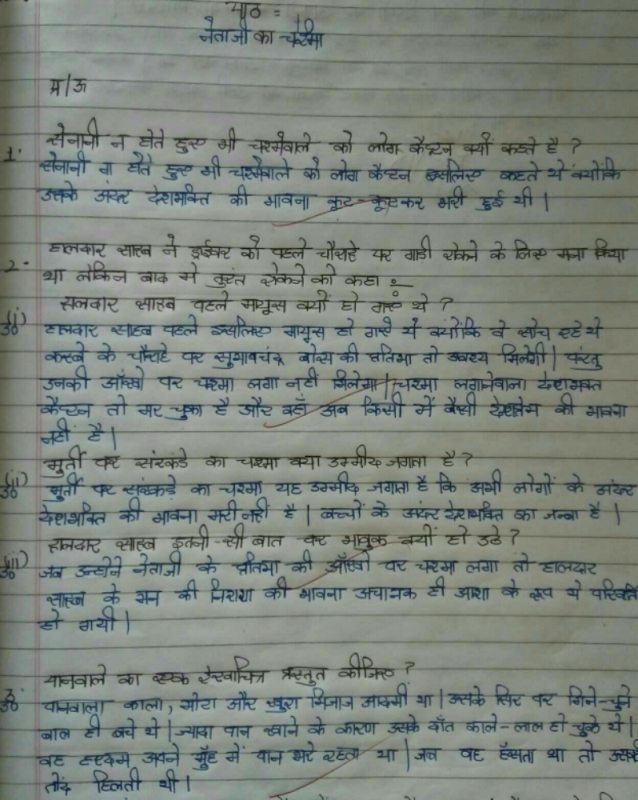 पाठ =
नेताजी का चश्मा
प्र/उ
1. सेनानी न होते हुए भी चश्मेवाले को लोग कैप्टन क्यों कहते है ?
सेनानी ना होते हुए भी चश्मेवाले को लोग कैप्टन इसलिए कहते थे क्योंकि
उसके अंदर देशभक्ति की भावना कूट-कूटकर भरी हुई थी |
2. हालदार साहब ने ड्राईवर को पहले चौराहे पर गाड़ी रोकने के लिए मना किया
था लेकिन बाद मे तुरंत रोकने को कहा :-
हालदार साहब पहले मायूस क्यों हो गए थे ?
उ i) हालदार साहब पहले इसलिए मायूस हो गए थे क्योंकि वे सोच रहे थे
कस्बे के चौराहे पर सुभाषचंद्र बोस की प्रतिमा तो अवश्य मिलेगी | परंतु
उनकी आँखो पर चश्मा लगा नही मिलेगा | चश्मा लगानेवाला देशभक्त
कैप्टन तो मर चुका है और वहाँ अब किसी में वैसी देशप्रेम की भावना
नही है |
मुर्ती पर सरकंडे का चश्मा क्या उम्मीद जगाता है ?
उ ii) मुर्ती पर सरकंडे का चश्मा यह उम्मीद जगाता है कि अभी लोगों के अंदर
देशभक्ति की भावना मरी नही है | बच्चों के अंदर देशभक्ति का जज्बा है |
हालदार साहब इतनी-सी बात पर भावुक क्यों हो उठे ?
उ iii) जब उन्होंने नेताजी के प्रतिमा की आँखो पर चश्मा लगा तो हालदार
साहब के मन की निराशा की भावना अचानक ही आशा के रूप मे परिवर्ति
हो गयी |
3. पानवाले का एक रेखाचित्र प्रस्तुत कीजिए ?
उ पानवाला काला, मोटा और खुश मिजाज आदमी था | उसके सिर पर गिने-चुने
बाल ही बचे थे | ज्यादा पान खाने के कारण उसके दाँत काले-लाल हो चुके थे |
वह हरदम अपने मुँह में पान भरे रहता था | जब वह हँसता था तो उसकी
तोंद हिलती थी |